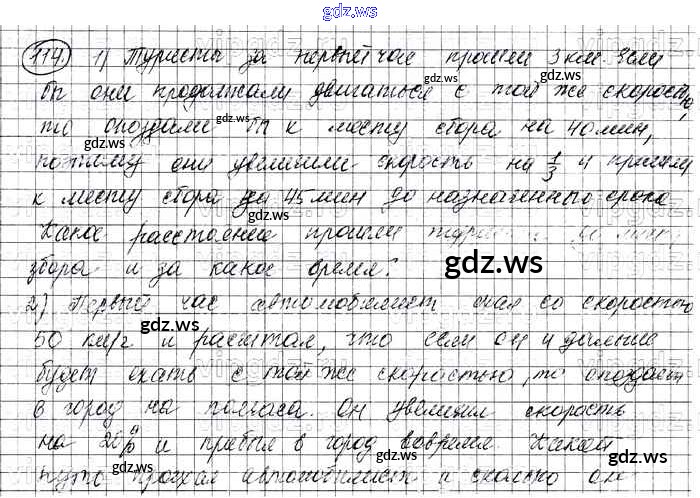 gdz.ws
114. 1) Туристы за первый час прошли 3 км. Если
gdz.ws
бы они продолжали двигаться с той же скоростью,
то опоздали бы к месту сбора на 40 мин,
gdz.ws
поэтому они увеличили скорость на 1/3 и пришли
к месту сбора за 45 мин до назначенного срока
gdz.ws
Какое расстояние прошли
сбора и за какое время?
gdz.ws
2) Первый час автомобилист ехал со скоростью
50 км/ч и расчитал, что если он и дальше
gdz.ws
будет ехать с той же скоростью, то опоздает
в город на полчаса. Он увеличил скорость
gdz.ws
на 20% и прибыл в город вовремя. Какой
gdz.ws
путь проехал автомобилист и сколько он
gdz.ws